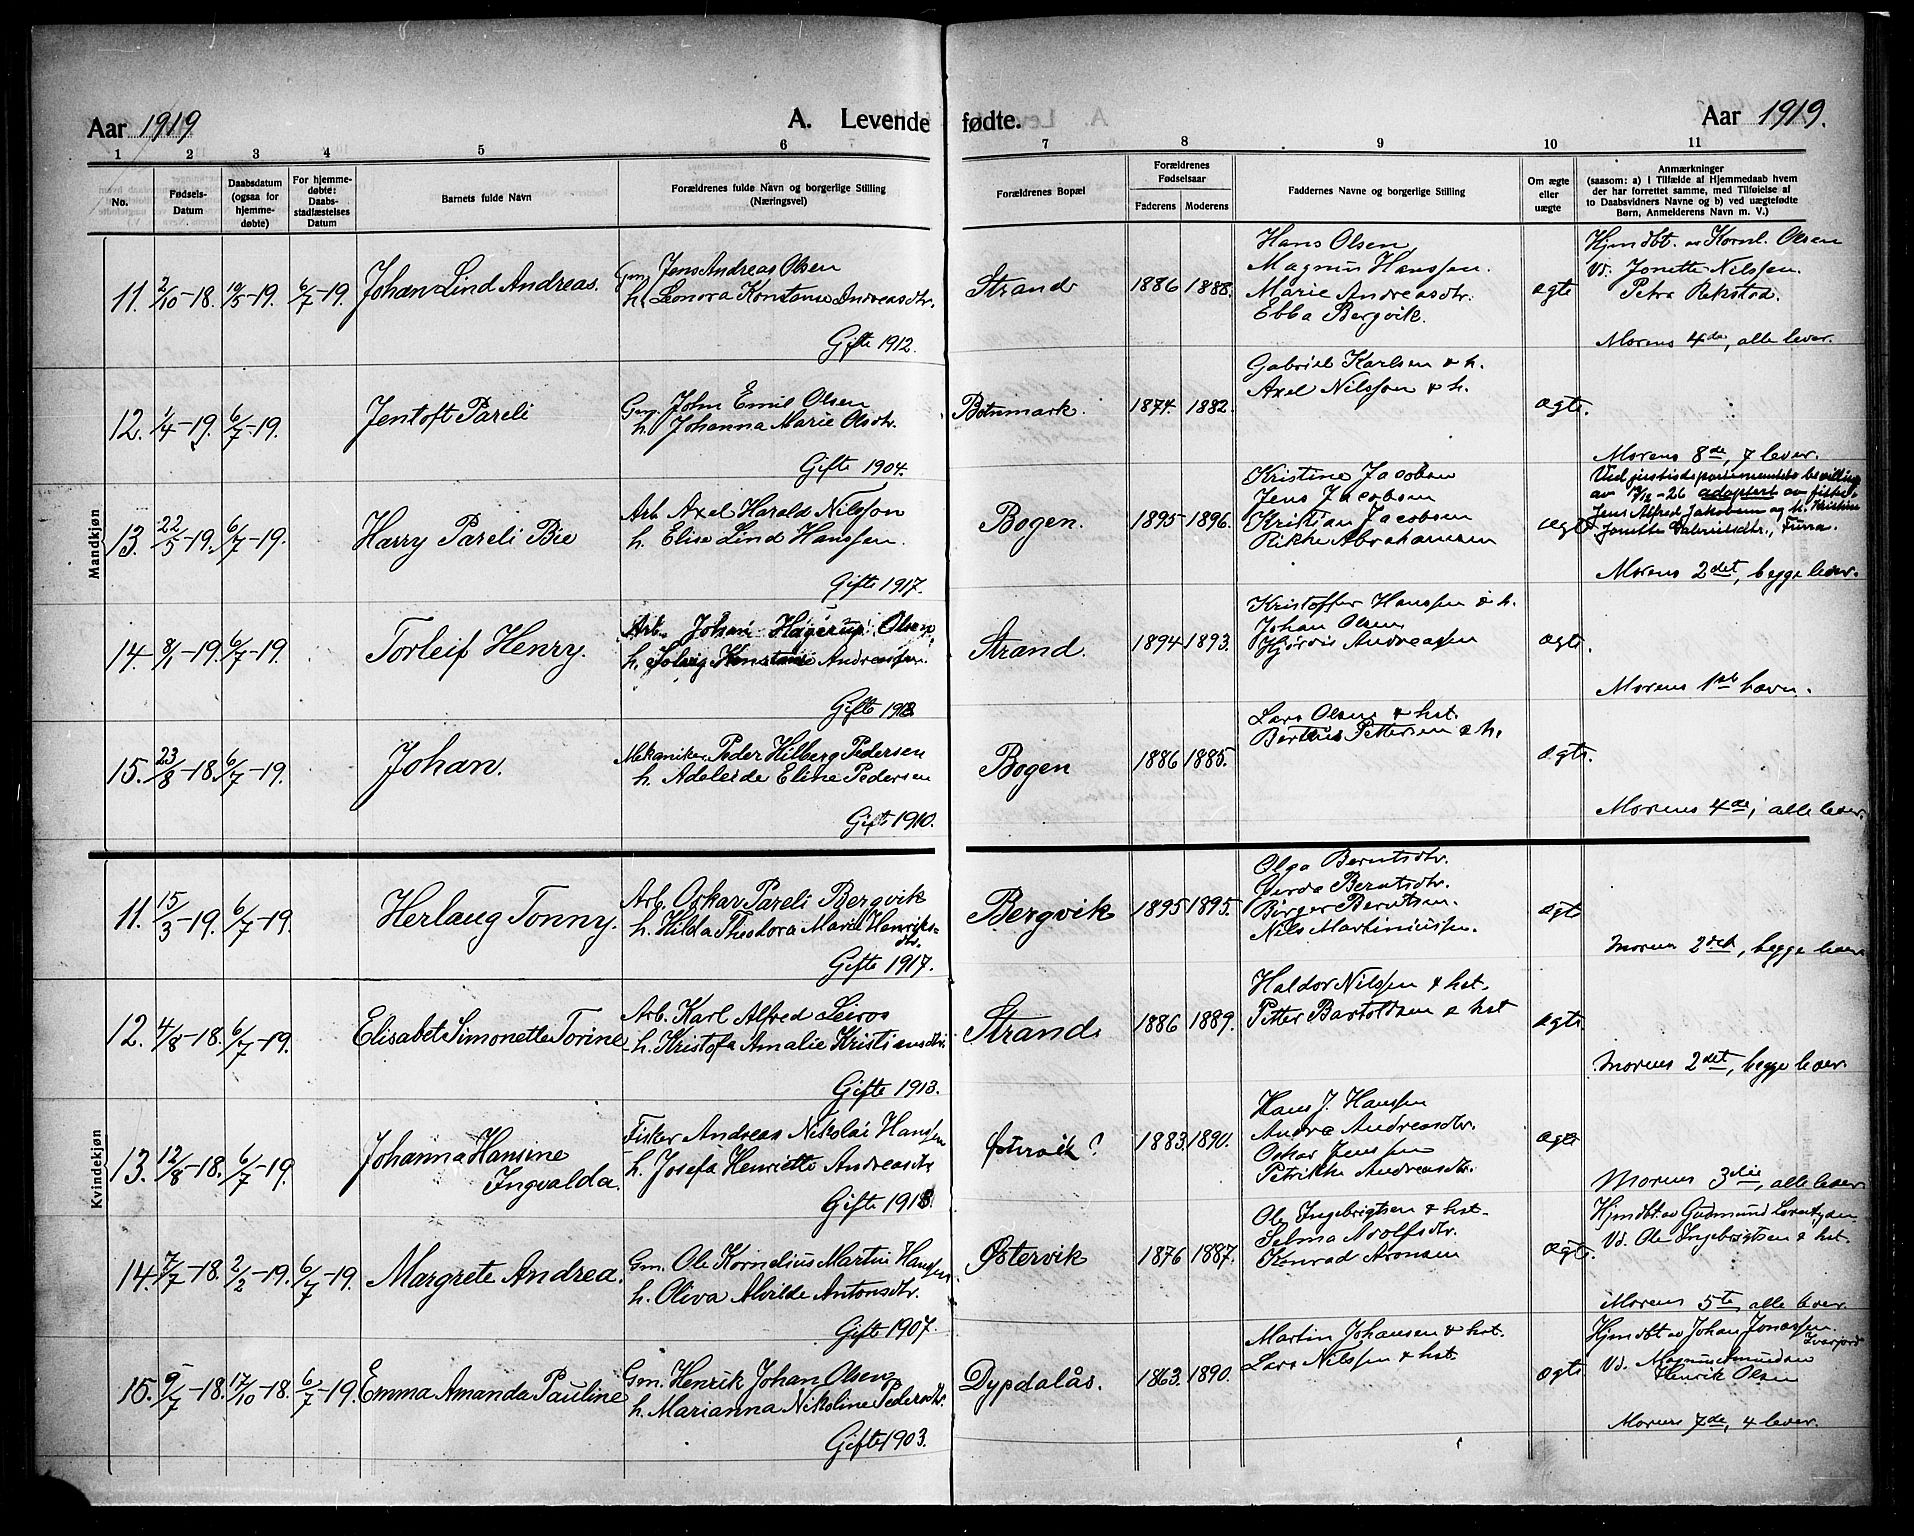 Aar 1919
A. Levende fødte.
Aar 1919.
1 2 3 4 5 6 7 8 9 10 11
No.
Fødsels-
Datum
Daabsdatum
(ogsaa for
hjemme-
døbte)
For hjemme-
døbte:
Daabs-
stadfæstelses
Datum
Barnets fulde Navn
Forældrenes fulde Navn og borgerlige Stilling
(Næringsvei)
Forældrenes Bopæl
Forældrenes
Fødselsaar
Faderens Moderens
Faddernes Navne og borgerlige Stilling
Om ægte
eller
uægte
Anmærkninger
(saasom: a) i Tilfælde af Hjemmedaab hvem
der har forrettet samme, med Tilføielse af
to Daabsvidners Navne og b) ved uægtefødte
Børn, Anmelderens Navn m. V.)
Mandkjøn
11. 2/10-18. 19/5-19. 6/7-19. Johan Lind Andreas.
Gm. Jens Andreas Olsen
h. Leonora Konstanse Andreasdtr.
Gifte 1912.
Strand 1886 1888.
Hans Olsen,
Magnus Hanssen.
Marie Andreasdtr.
Ebba Bergvik.
ægte
Hjmdbt. av Kornl. Olsen
Vd. Jonette Nilssen.
Petra Rekstad.
Morens 4de, alle lever.
12. 1/4-19. 6/7-19. Jentoft Pareli
Gm. John Emil Olsen
h. Johanna Marie Olsdtr.
Gifte 1904.
Botnmark. 1874. 1882.
Gabriel Karlsen & h.
Axel Nilsson & h.
ægte.
Morens 8de, 7 lever.
13. 22/5-19. 6/7-19. Harry Pareli Bie
Arb. Axel Harald Nilsson
h. Elise Lind Hanssen.
Gifte 1917.
Bogen. 1895 1896.
Kristine Jacobsen
Jens Jacobsen
Kristian Jacobsen
Rikke Abrahamsen
ægte
Ved justisdepartementets bevilling
av 17/12-26 adoptert av fisker
Jens Alfred Jakobsen og h. Kristine
Jonette Gabrielsdtr., Furu.
Morens 2det, begge lever.
14. 8/1-19. 6/7-19. Torleif Henry.
Arb. Johan Hagerup Olsen,
h. Solveig Konstanse Andreassen.
Gifte 1918.
Strand. 1894 1893.
Kristoffer Hanssen & h.
Johan Olsen
Hjørdis Andreassen
ægte.
Morens 1ste barn.
15. 23/8-18. 6/7-19. Johan.
Mekaniker Peder Hilberg Pedersen
h. Adeleide Eline Pedersen
Gifte 1910.
Bogen 1886 1885.
Lars Olsen & hst.
Bertius Pettersen & h.
ægte.
Morens 4de, alle lever.
Kvindekjøn
11. 15/3-19. 6/7-19. Herlaug Tonny.
Arb. Oskar Pareli Bergvik
h. Hilda Theodora Marie Henriks-
dtr.
Gifte 1917.
Bergvik 1895 1895.
Olga Berntsdtr.
Gerda Berntsdtr.
Birger Berntsen.
Nils Martinussen.
ægte
Morens 2det, begge lever
12. 4/8-18. 6/7-19. Elisabet Simonette Torine
Arb. Karl Alfred Leiros
h. Kristofa Amalie Kristiansdtr.
Gifte 1913.
Strand 1886 1889.
Haldor Nilssen & hst.
Petter Bartoldsen & hst
ægte
Morens 2det, begge lever.
13. 12/8-18. 6/7-19 Johanna Hansine
Ingvalda.
Fisker Andreas Nikolai Hanssen
h. Josefa Henriette Andreasdtr
Gifte 1913.
Østervik? 1883. 1890.
Hans J. Hanssen
Andrea Andreasdtr.
Oskar Jenssen
Petrikke Andreasdtr.
ægte
Morens 3die, alle lever
14. 7/7-18. 2/2-19. 6/7-19. Margrete Andrea.
Gm. Ole Kornelius Martin Hanssen
h. Oliva Alvilde Antonsdtr.
Gifte 1907.
Østervik 1876 1887.
Ole Ingebrigtsen & hst.
Selma Adolfsdtr.
Konrad Aronsen
ægte.
Hjmdbt. av Gudmund Lorentzen
Vd. Ole Ingebrigtsen & hst.
Morens 5te, alle lever.
15. 9/7-18. 17/10-18. 6/7-19. Emma Amanda Pauline
Gm. Henrik Johan Olsen
h. Marianna Nikoline Pedersdtr.
Gifte 1903.
Dypdalås. 1863. 1890.
Martin Johansen & hst.
Lars Nilssen & hst.
ægte
Hjmdbt av Johan Jonassen.
Ivarjord
Vd. Magnus Amundsen
Henrik Olsen
Morens 7de, 4 lever.